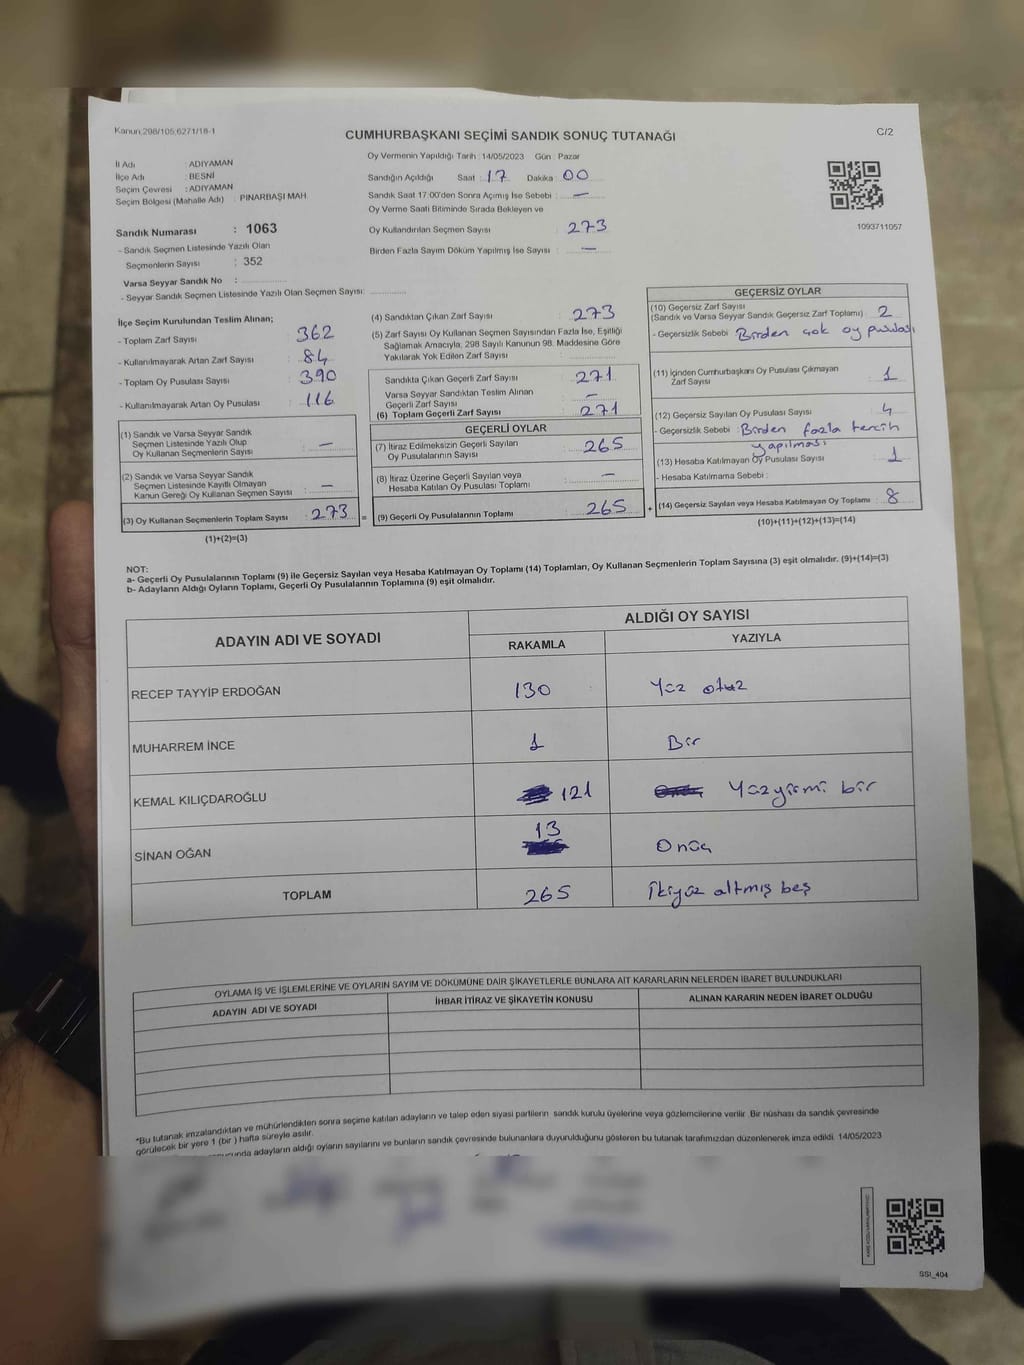 Kanun 298/105,6271/18-1
CUMHURBAŞKANI SEÇİMİ SANDIK SONUÇ TUTANAĞI
C/2
İl Adı : ADIYAMAN
İlçe Adı : BESNİ
Seçim Çevresi : ADIYAMAN
Seçim Bölgesi (Mahalle Adı) : PINARBAŞI MAH.
Sandık Numarası : 1063
- Sandık Seçmen Listesinde Yazılı Olan
Seçmenlerin Sayısı : 352
Varsa Seyyar Sandık No : ..............
- Seyyar Sandık Seçmen Listesinde Yazılı Olan Seçmen Sayısı: ............
Oy Vermenin Yapıldığı Tarih : 14/05/2023 Gün : Pazar
Sandığın Açıldığı Saat : 17 Dakika : 00
Sandık Saat 17:00'den Sonra Açımış İse Sebebi : —
Oy Verme Saati Bitiminde Sırada Bekleyen ve
Oy Kullandırılan Seçmen Sayısı : 273
Birden Fazla Sayım Döküm Yapılmış İse Sayısı : —
1093711057
İlçe Seçim Kurulundan Teslim Alınan;
- Toplam Zarf Sayısı : 362
- Kullanılmayarak Artan Zarf Sayısı : 84
- Toplam Oy Pusulası Sayısı : 390
- Kullanılmayarak Artan Oy Pusulası : 116
(1) Sandık ve Varsa Seyyar Sandık
Seçmen Listesinde Yazılı Olup
Oy Kullanan Seçmenlerin Sayısı : —
(2) Sandık ve Varsa Seyyar Sandık
Seçmen Listesinde Kayıtlı Olmayan
Kanun Gereği Oy Kullanan Seçmen Sayısı : —
(3) Oy Kullanan Seçmenlerin Toplam Sayısı : 273 =
(1)+(2)=(3)
(4) Sandıktan Çıkan Zarf Sayısı : 273
(5) Zarf Sayısı Oy Kullanan Seçmen Sayısından Fazla İse, Eşitliği
Sağlamak Amacıyla, 298 Sayılı Kanunun 98. Maddesine Göre
Yakılarak Yok Edilen Zarf Sayısı : ..............
Sandıkta Çıkan Geçerli Zarf Sayısı : 271
Varsa Seyyar Sandıktan Teslim Alınan
Geçerli Zarf Sayısı : —
(6) Toplam Geçerli Zarf Sayısı : 271
GEÇERLİ OYLAR
(7) İtiraz Edilmeksizin Geçerli Sayılan
Oy Pusulalarının Sayısı : 265
(8) İtiraz Üzerine Geçerli Sayılan veya
Hesaba Katılan Oy Pusulası Toplamı : —
(9) Geçerli Oy Pusulalarının Toplamı : 265 +
GEÇERSİZ OYLAR
(10) Geçersiz Zarf Sayısı
(Sandık ve Varsa Seyyar Sandık Geçersiz Zarf Toplamı) : 2
- Geçersizlik Sebebi : Birden çok oy pusulası
(11) İçinden Cumhurbaşkanı Oy Pusulası Çıkmayan
Zarf Sayısı : 1
(12) Geçersiz Sayılan Oy Pusulası Sayısı : 4
- Geçersizlik Sebebi : Birden fazla tercih
yapılması
(13) Hesaba Katılmayan Oy Pusulası Sayısı : 1
- Hesaba Katılmama Sebebi :
(14) Geçersiz Sayılan veya Hesaba Katılmayan Oy Toplamı : 8
(10)+(11)+(12)+(13)=(14)
NOT:
a- Geçerli Oy Pusulalarının Toplamı (9) ile Geçersiz Sayılan veya Hesaba Katılmayan Oy Toplamı (14) Toplamları, Oy Kullanan Seçmenlerin Toplam Sayısına (3) eşit olmalıdır. (9)+(14)=(3)
b- Adayların Aldığı Oyların Toplamı, Geçerli Oy Pusulalarının Toplamına (9) eşit olmalıdır.
ADAYIN ADI VE SOYADI
ALDIĞI OY SAYISI
RAKAMLA YAZIYLA
RECEP TAYYİP ERDOĞAN 130 Yüz otuz
MUHARREM İNCE 1 Bir
KEMAL KILIÇDAROĞLU 121 Yüzyirmi bir
SİNAN OĞAN 13 Onüç
TOPLAM 265 İkiyüz altmış beş
OYLAMA İŞ VE İŞLEMLERİNE VE OYLARIN SAYIM VE DÖKÜMÜNE DAİR ŞİKAYETLERLE BUNLARA AİT KARARLARIN NELERDEN İBARET BULUNDUKLARI
ADAYIN ADI VE SOYADI İHBAR İTİRAZ VE ŞİKAYETİN KONUSU ALINAN KARARIN NEDEN İBARET OLDUĞU
*Bu tutanak imzalandıktan ve mühürlendikten sonra seçime katılan adayların ve talep eden siyasi partilerin sandık kurulu üyelerine veya gözlemcilerine verilir. Bir nüshası da sandık çevresinde
görülecek bir yere 1 (bir) hafta süreyle asılır.
adayların aldığı oyların sayılarını ve bunların sandık çevresinde bulunanlara duyurulduğunu gösteren bu tutanak tarafımızdan düzenlenerek imza edildi. 14/05/2023
SSI_404